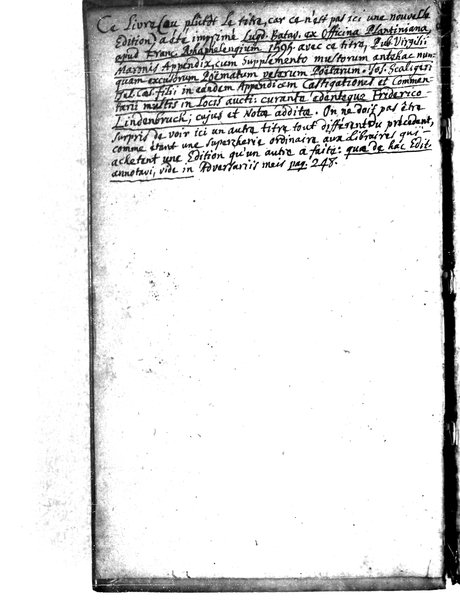 Ce livre (ou plûtôt le titre, car ce n'est pas ici une nouvelle
Edition) a été imprimé Lugd. Batav. ex Officina Plantiniana,
apud Franc. Raphelengium 1595 avec ce titre, Pub. Virgilii
Maronis Appendix, cum Supplemento multorum antehac nun-
quam excusorum Poematum veterum Poetarum. Jos. Scaligeri
Jul. Cæs. filii in eandem Appendicem Castigationes et Commen-
tarii multis in locis aucti: curante edenteque Friderico
Lindenbruch; cujus et Notæ additæ. On ne doit pas être
surpris de voir ici un autre titre tout different du précedent,
comme étant une supercherie ordinaire aux Libraires qui
achetent une Edition qu'un autre a faite: quæ de hac Edit.
annotavi, vide in Adversariis meis pag. 248.